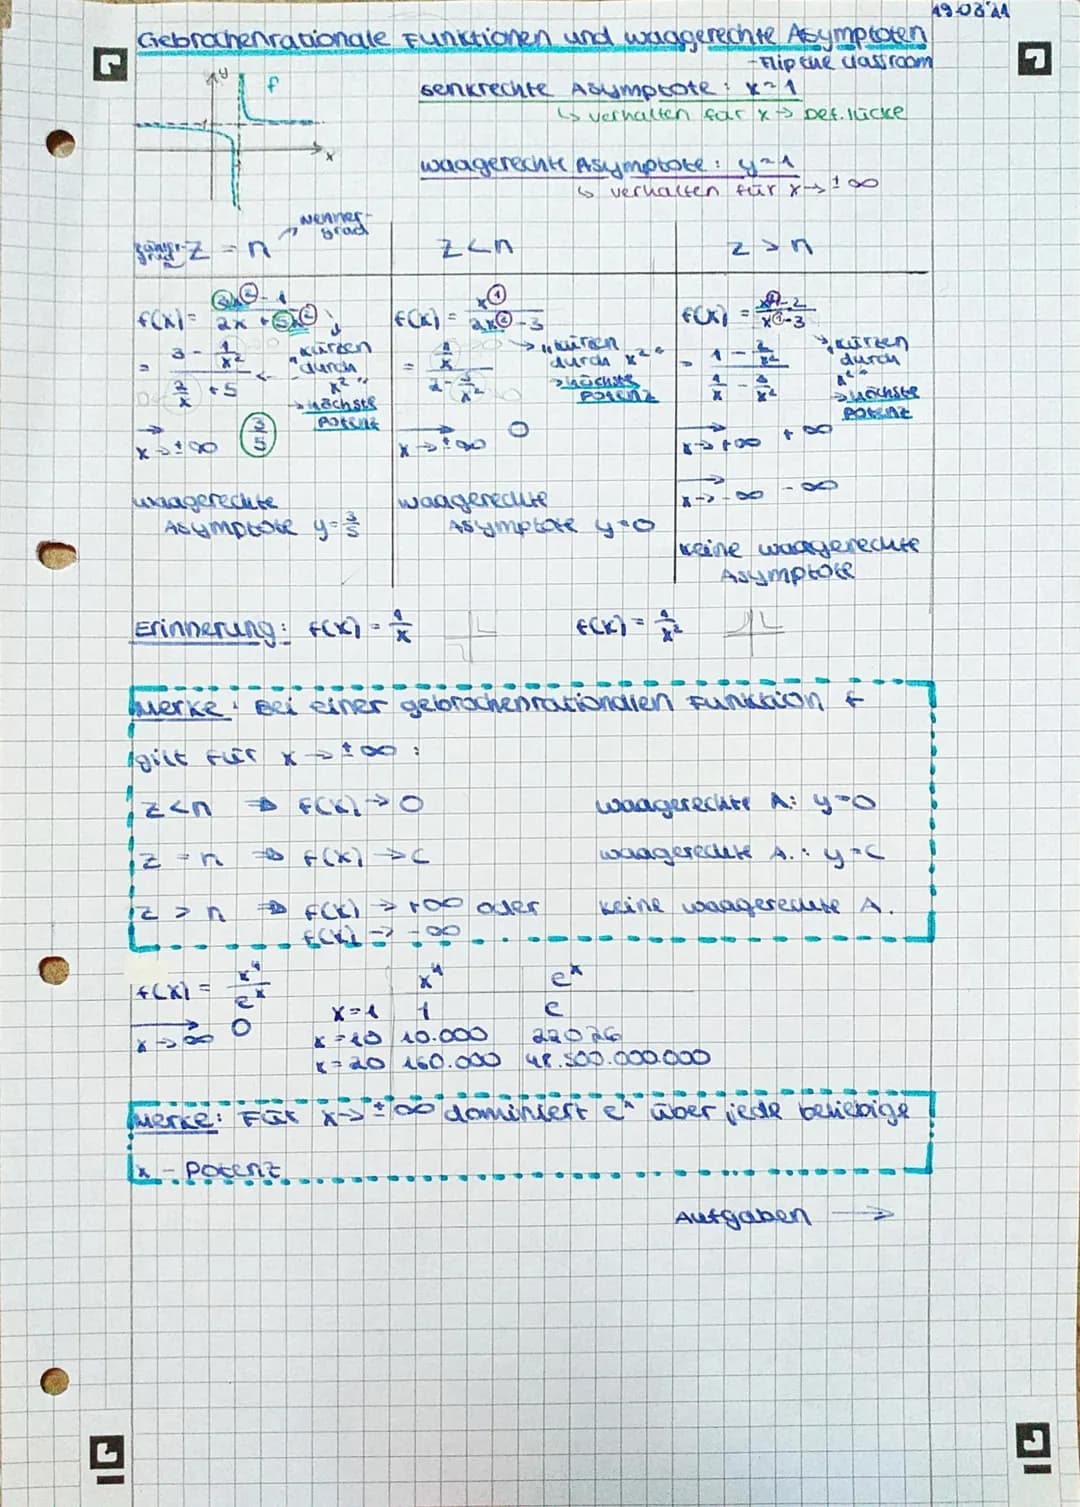 19.03.21
Gebrochenrationale Funktionen und waagerechte Asymptoten
- Flip the classroom
y
f
x
senkrechte Asymptote: x=1
↳ verhalten für x→ Def.lücke
waagerechte Asymptote: y=1
↳ verhalten für x→ ±∞
Zählergrad Z = n → Nennergrad
z < n
z > n
f(x) = (3x² - 1)/(2x + 5x²)
= (3 - 1/x²)/(2/x + 5)
"kürzen durch x²"
→ höchste Potenz
x→±∞ 3/5
waagerechte
Asymptote y=3/5
f(x) = x¹/(2x²-3)
= (1/x)/(2-3/x²)
"kürzen durch x²"
→ höchste Potenz
x→±∞ 0
waagerechte
Asymptote y=0
= (1 - 2/x²)/(1/x - 3/x²)
"kürzen durch x²"
→ höchste Potenz
x→+∞ +∞
x→-∞ -∞
keine waagerechte
Asymptote
Erinnerung: f(x) = 1/x f(x) = 1/x²
Merke: Bei einer gebrochenrationalen Funktion f
gilt für x → ±∞ :
z < n ⇒ f(x) → 0 waagerechte A: y=0
z = n ⇒ f(x) → c waagerechte A.: y=c
z > n ⇒ f(x) → +∞ oder keine waagerechte A.
f(x) → -∞
f(x) = x⁴/eˣ
x→∞ 0
x⁴ eˣ
x=1 1 e
x=10 10.000 22026
x=20 160.000 48.500.000.000
Merke: Für x→ ±∞ dominiert eˣ über jede beliebige
x - Potenz
Aufgaben →